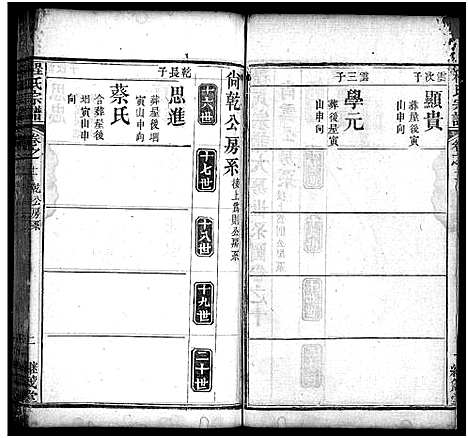 雲次子
顯貴
葬屋後
寅山申向
雲三子
學元
葬後屋寅
山申向
尚乾公房系 接上為則公房系
十六世
十七世
十八世
十九世
二十世
乾長子
思進
葬屋後堋
寅山申向
蔡氏
合葬屋後
堋寅山申
向
程氏宗譜
卷之十
乾公房系
二